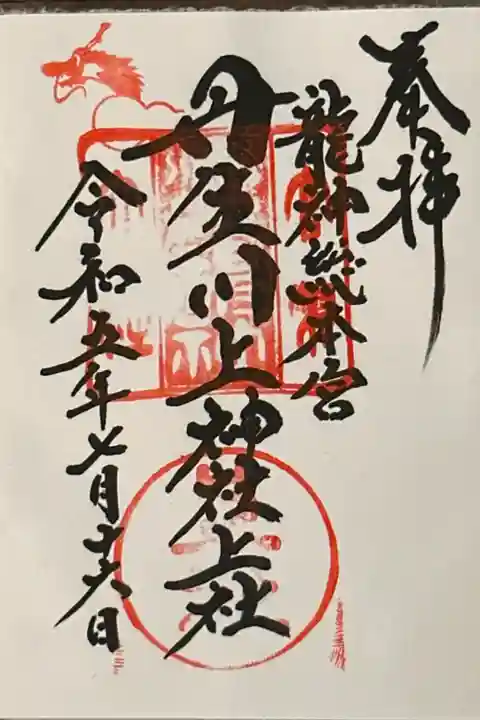 奉拝
龍神総本宮
丹生川上神社上社
令和五年七月十六日